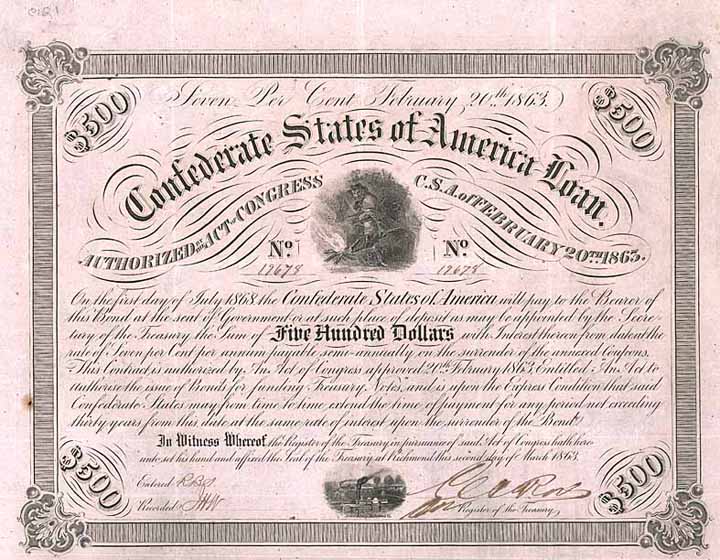 $500
$500
(Seven Per Cent February 20th 1863.)
Confederate States of America Loan.
AUTHORIZED BY ACT OF CONGRESS C.S.A. of FEBRUARY 20TH 1863.
No. No.
12678 12678
On the first day of July 1868 the Confederate States of America will pay to the Bearer of
this Bond at the seat of Government or at such place of deposit as may be appointed by the Secre-
tary of the Treasury the Sum of Five Hundred Dollars with Interest thereon from date at the
rate of Seven per Cent per annum payable semi-annually on the surrender of the annexed Coupons.
This Contract is authorized by An Act of Congress approved 20th February 1863, Entitled: An Act to
authorise the issue of Bonds for funding Treasury Notes, and is upon the Express Condition that said
Confederate States may from time to time extend the time of payment for any period not exceeding
thirty years from this date at the same rate of interest upon the surrender of the Bond.
In Witness Whereof, the Register of the Treasury in pursuance of said Act of Congress hath here-
unto set his hand and affixed the Seal of the Treasury at Richmond this second day of March 1863.
Entered
Recorded
Register of the Treasury.
$500
$500